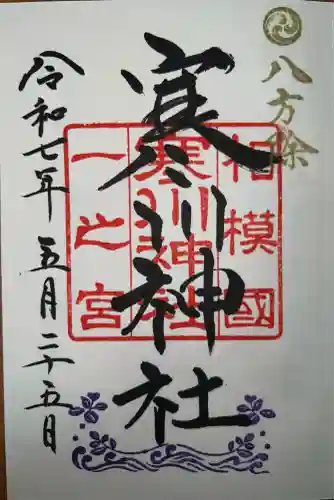 八方除
寒川神社
相模國
寒川神社
一之宮
令和七年 五月二十五日